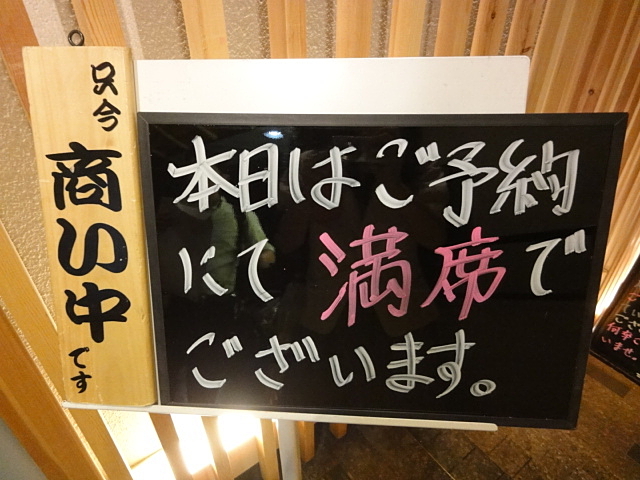 只今
商い中
です
本日はご予約
にて満席で
ございます。